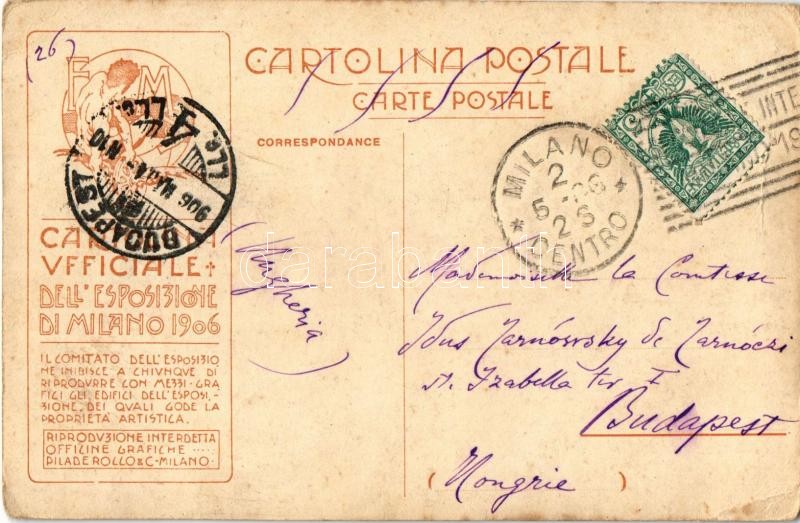 (26)
CARTOLINA POSTALE
CARTE POSTALE
CORRESPONDANCE
F M
MILANO
2 5-06
2 S
* CENTRO *
BUDAPEST
906 MÁJ 4 N10
4
CARTOLINA
VFFICIALE
DELL'ESPOSIZIONE
DI MILANO 1906
IL COMITATO DELL'ESPOSIZIO
NE INIBISCE A CHIVNQVE DI
RIPRODVRRE CON MEZZI-GRA
FICI GLI EDIFICI DELL'ESPOSI,-
ZIONE, DEI QVALI GODE LA
PROPRIETÀ ARTISTICA.
RIPRODVZIONE INTERDETTA
OFFICINE GRAFICHE .....
PILADE ROLLO & C-MILANO-
(Ungheria)
Mademoiselle la Comtesse
Idus Zarnóvsky de Zarnóczi
Izabella tér I
Budapest
(Hongrie)
darabanth